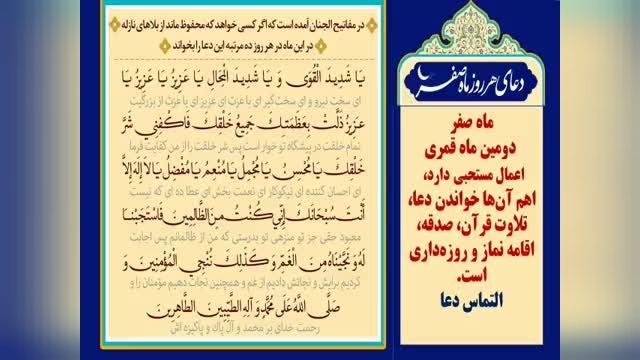 دعای هر روز ماه صفر
ماه صفر
دومین ماه قمری
اعمال مستحبی دارد،
اهم آن‌ها خواندن دعا،
تلاوت قرآن، صدقه،
اقامه نماز و روزه‌داری
است.
التماس دعا
در مفاتیح الجنان آمده است که اگر کسی خواهد که محفوظ ماند از بلاهای نازله
در این ماه در هر روز ده مرتبه این دعا را بخواند
یَا شَدِیدَ الْقُوَى وَ یَا شَدِیدَ الْمِحَالِ یَا عَزِیزُ یَا عَزِیزُ یَا
ای سخت نیرو و ای سخت‌گیر ای با عزت ای عزیز ای با عزت از بزرگیت
عَزِیزُ ذَلَّتْ بِعَظَمَتِكَ جَمِیعُ خَلْقِكَ فَاكْفِنِي شَرَّ
تمام خلقت در پیشگاه تو خوار است پس شر خلقت را از من کفایت فرما
خَلْقِكَ یَا مُحْسِنُ یَا مُجْمِلُ یَا مُنْعِمُ یَا مُفْضِلُ یَا لا إِلَهَ إِلَّا
ای احسان کننده ای نیکوکار ای نعمت بخش ای عطا ده ای که نیست
أَنْتَ سُبْحَانَكَ إِنِّي كُنْتُ مِنَ الظَّالِمِينَ فَاسْتَجَبْنَا
معبود حقی جز تو منزهی تو بدرستی که من از ظالمانم پس اجابت
لَهُ وَ نَجَّیْنَاهُ مِنَ الْغَمِّ وَ كَذَلِكَ نُنْجِي الْمُؤْمِنِينَ وَ
کردیم برایش و نجاتش دادیم از غم و همچنین نجات دهیم مؤمنان را و
صَلَّى اللَّهُ عَلَى مُحَمَّدٍ وَ آلِهِ الطَّیِّبِینَ الطَّاهِرِینَ
رحمت خدای بر محمد و آل پاك و پاكیزه اش